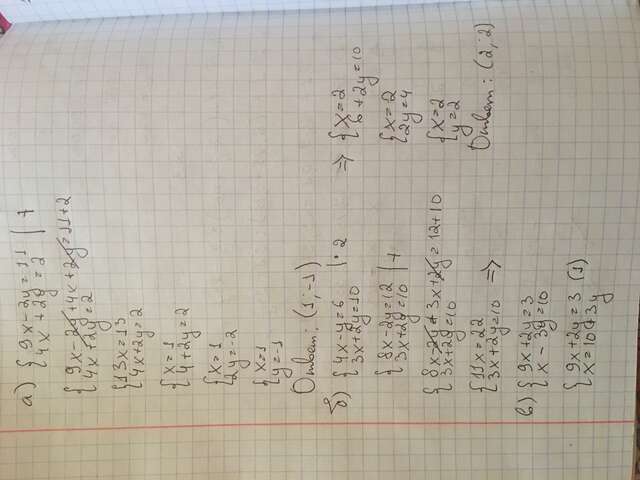 а) { 9x-2y=11 | +
{ 4x+2y=2
{ 9x-2y+4x+2y=11+2
{ 4x+2y=2
{ 13x=13
{ 4x+2y=2
{ x=1
{ 4+2y=2
{ x=1
{ 2y=-2
{ x=1
{ y=-1
Ответ: (1;-1)
б) { 4x-y=6 |·2
{ 3x+2y=10
{ 8x-2y=12 | +
{ 3x+2y=10
{ 8x-2y+3x+2y=12+10
{ 3x+2y=10
{ 11x=22
{ 3x+2y=10 =>
=> { x=2
{ 6+2y=10
{ x=2
{ 2y=4
{ x=2
{ y=2
Ответ: (2;2)
в) { 9x+2y=3
{ x-3y=10
{ 9x+2y=3 (1)
{ x=10+3y